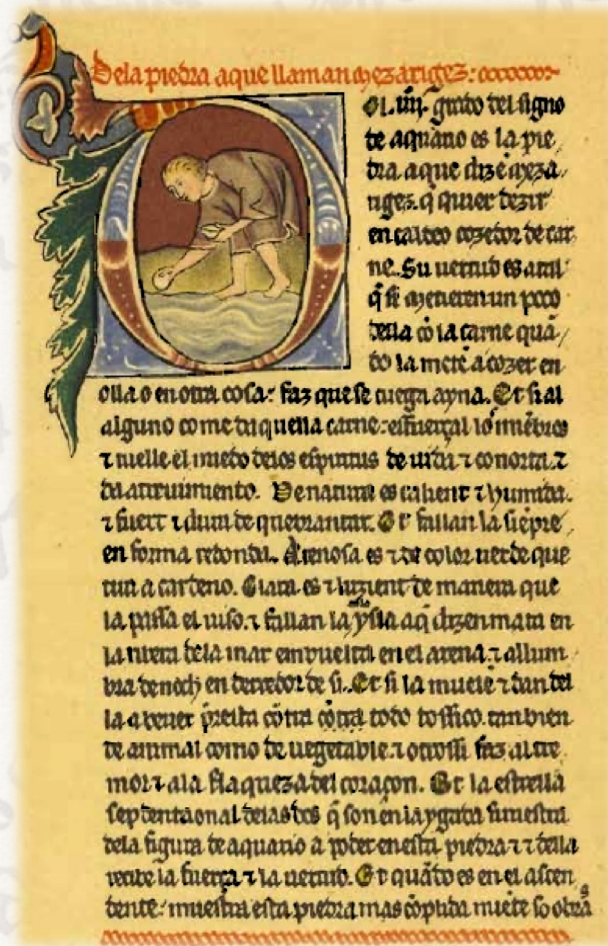 De la piedra a que llaman
El .iiij. grado del signo
de aquario es la pie
dra a que dizē
tigez. q̄ quier dezir
en caldeo cozedor de car
ne. Su uertud es atal
q̄ si metieren un poco
della cō la carne quā
do la metē a cozer en
olla o en otra cosa: faz que se cuega ayna. Et si al
alguno come daquella carne: esfuerçal los mēbros
⁊ tuelle el miedo delos espiritus de uida ⁊ conorta. ⁊
da atreuimiento. De natura es calient ⁊ humida.
⁊ fuert ⁊ dura de quebrantar. Et fallan la siēpre
en forma redonda. Arenosa es ⁊ de color uerde que
tira a cardeno. Clara es ⁊ luzient de manera que
la passa el uiso. ⁊ fallan la ysla aq̄ dizen en
la riuera dela mar embuelta en el arena. ⁊ allum
bra de noch en derredor de si. Et si la muelē ⁊ dan del
la a beuer presta cōtra todo tossico. tan bien
de animal como de uegetable. ⁊ otrossi faz al tre
mor ⁊ ala flaqueza del coraçon. Et la estrella
septentrional delas dos q̄ son en la siniestra
dela figura de aquario a poder en esta piedra ⁊ della
recibe la fuerça ⁊ la uertud. Et quādo es en el ascen
dente: muestra esta piedra mas cōplida miente so obra